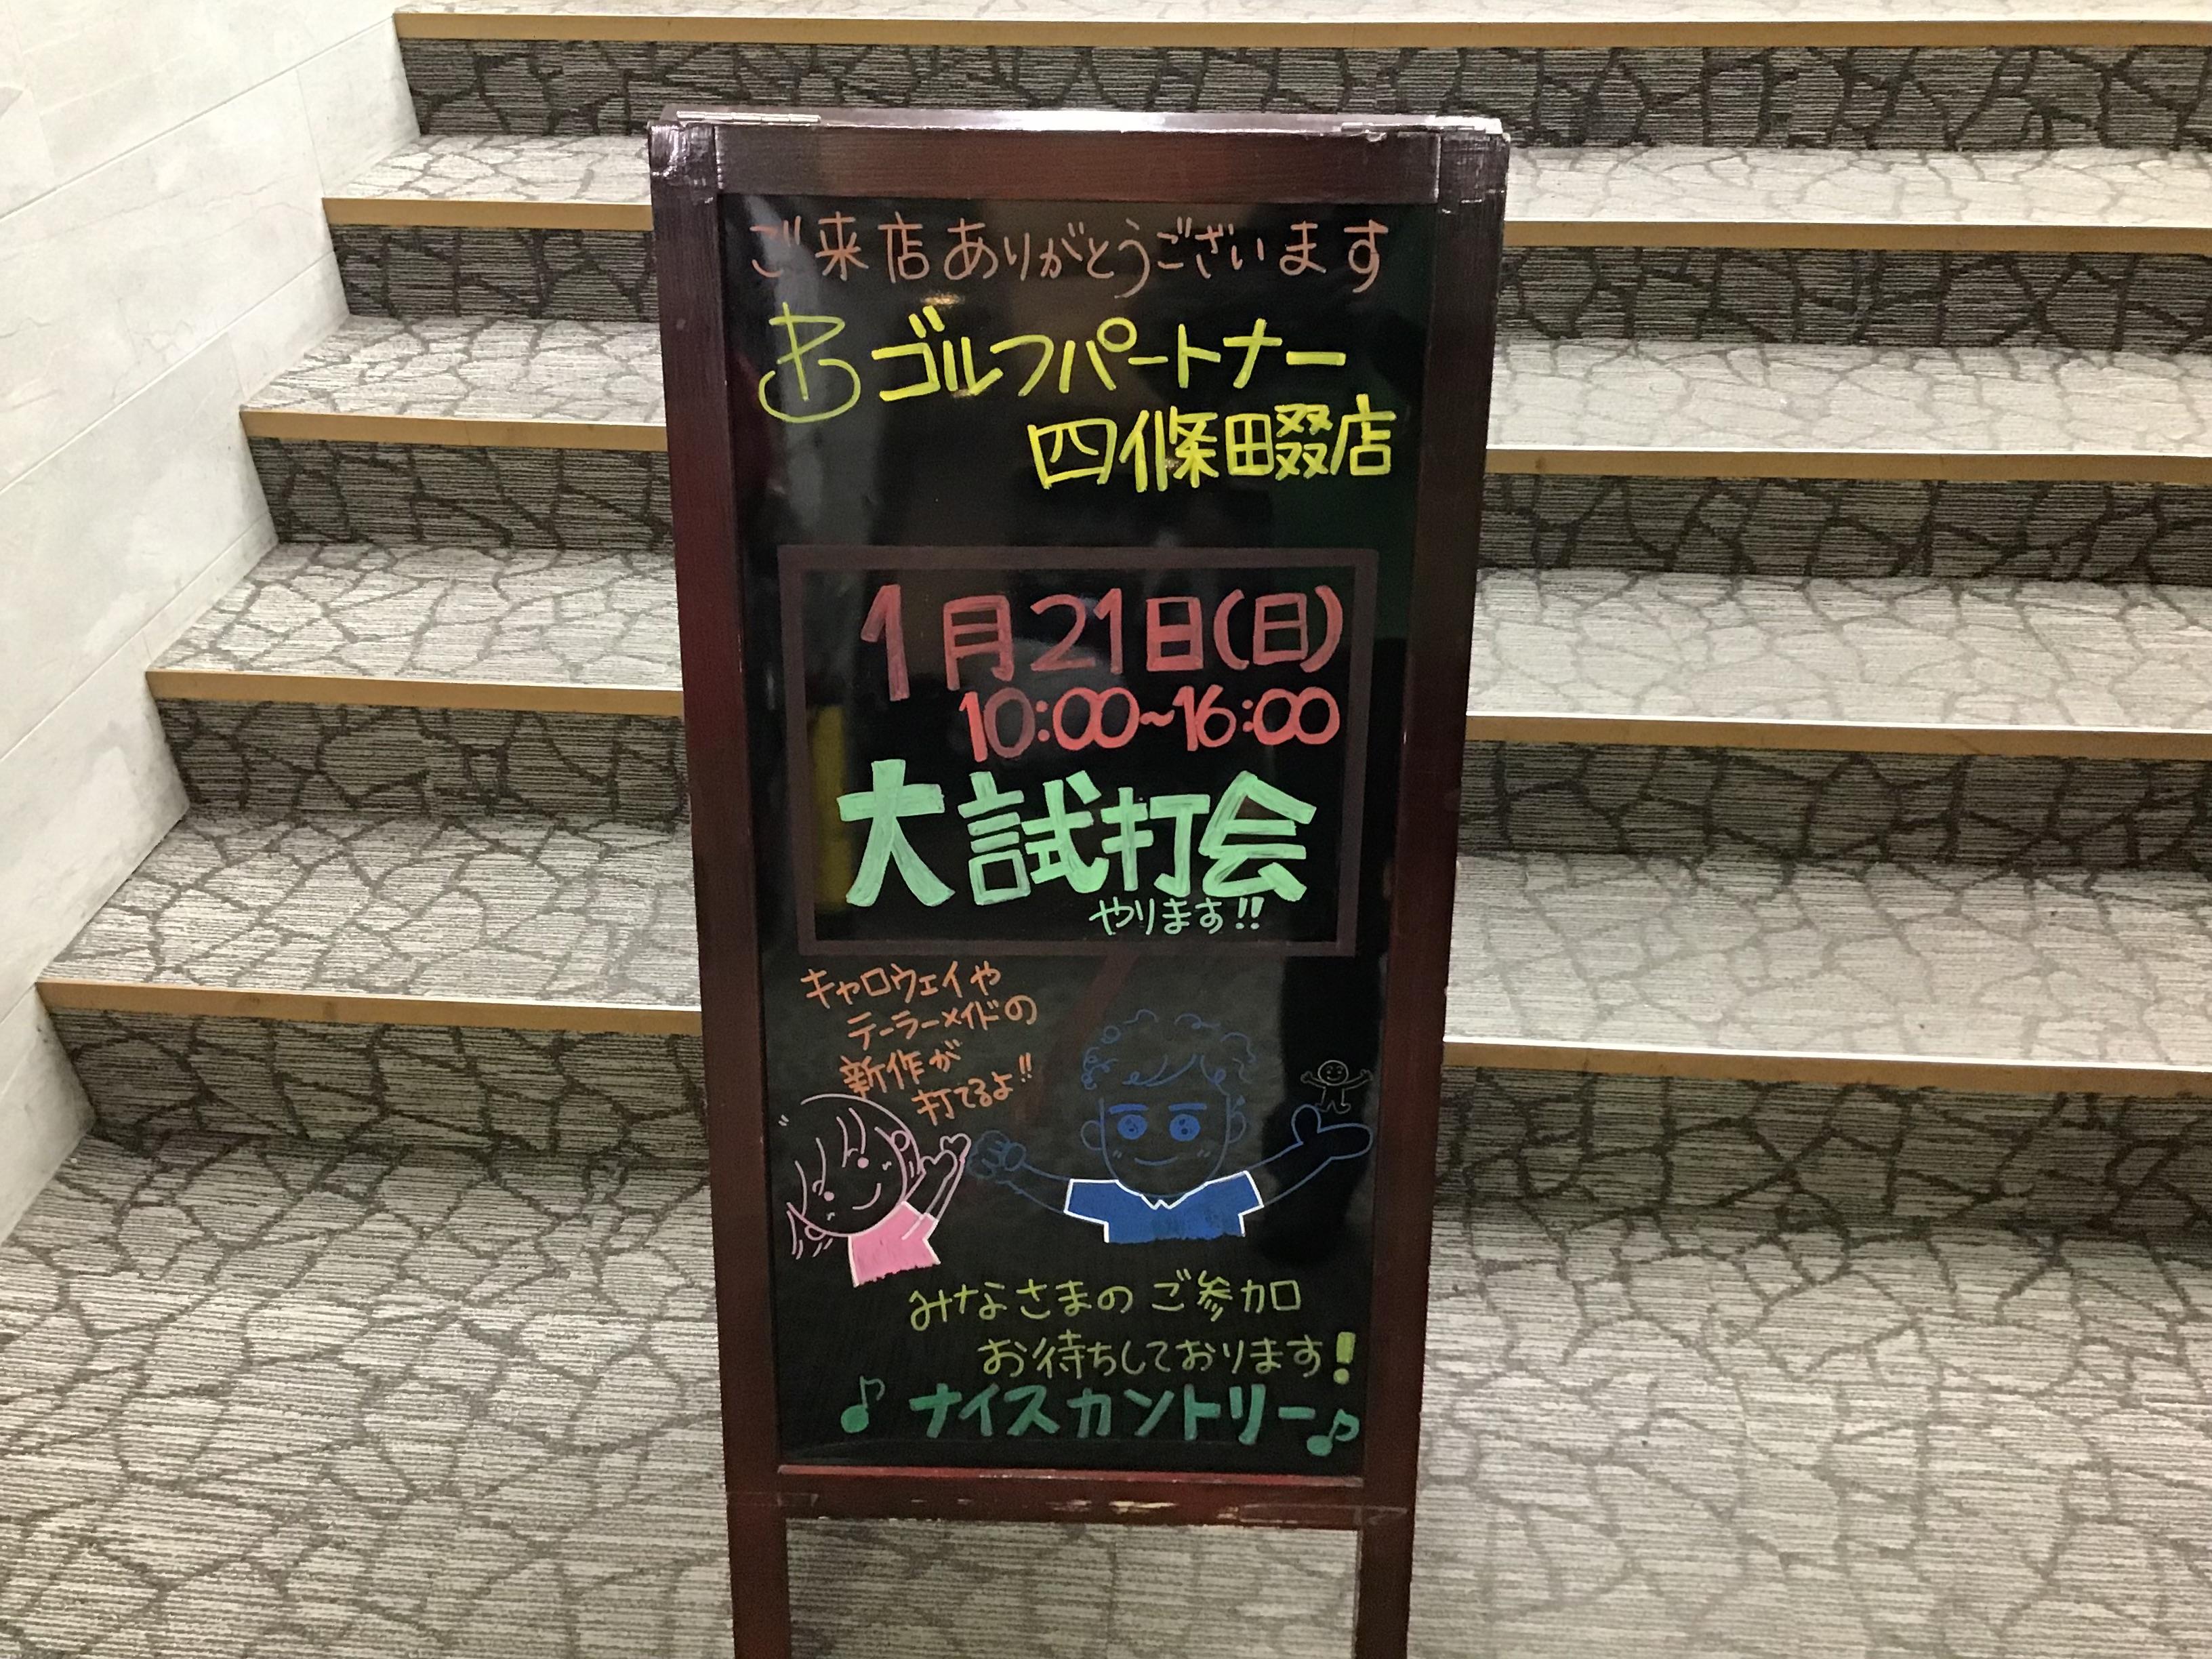 ご来店ありがとうございます
ゴルフパートナー
四條畷店
1月21日(日)
10:00~16:00
大試打会
やります!!
キャロウェイや
テーラーメイドの
新作が
打てるよ!!
みなさまのご参加
お待ちしております!
♪ナイスカントリー♪